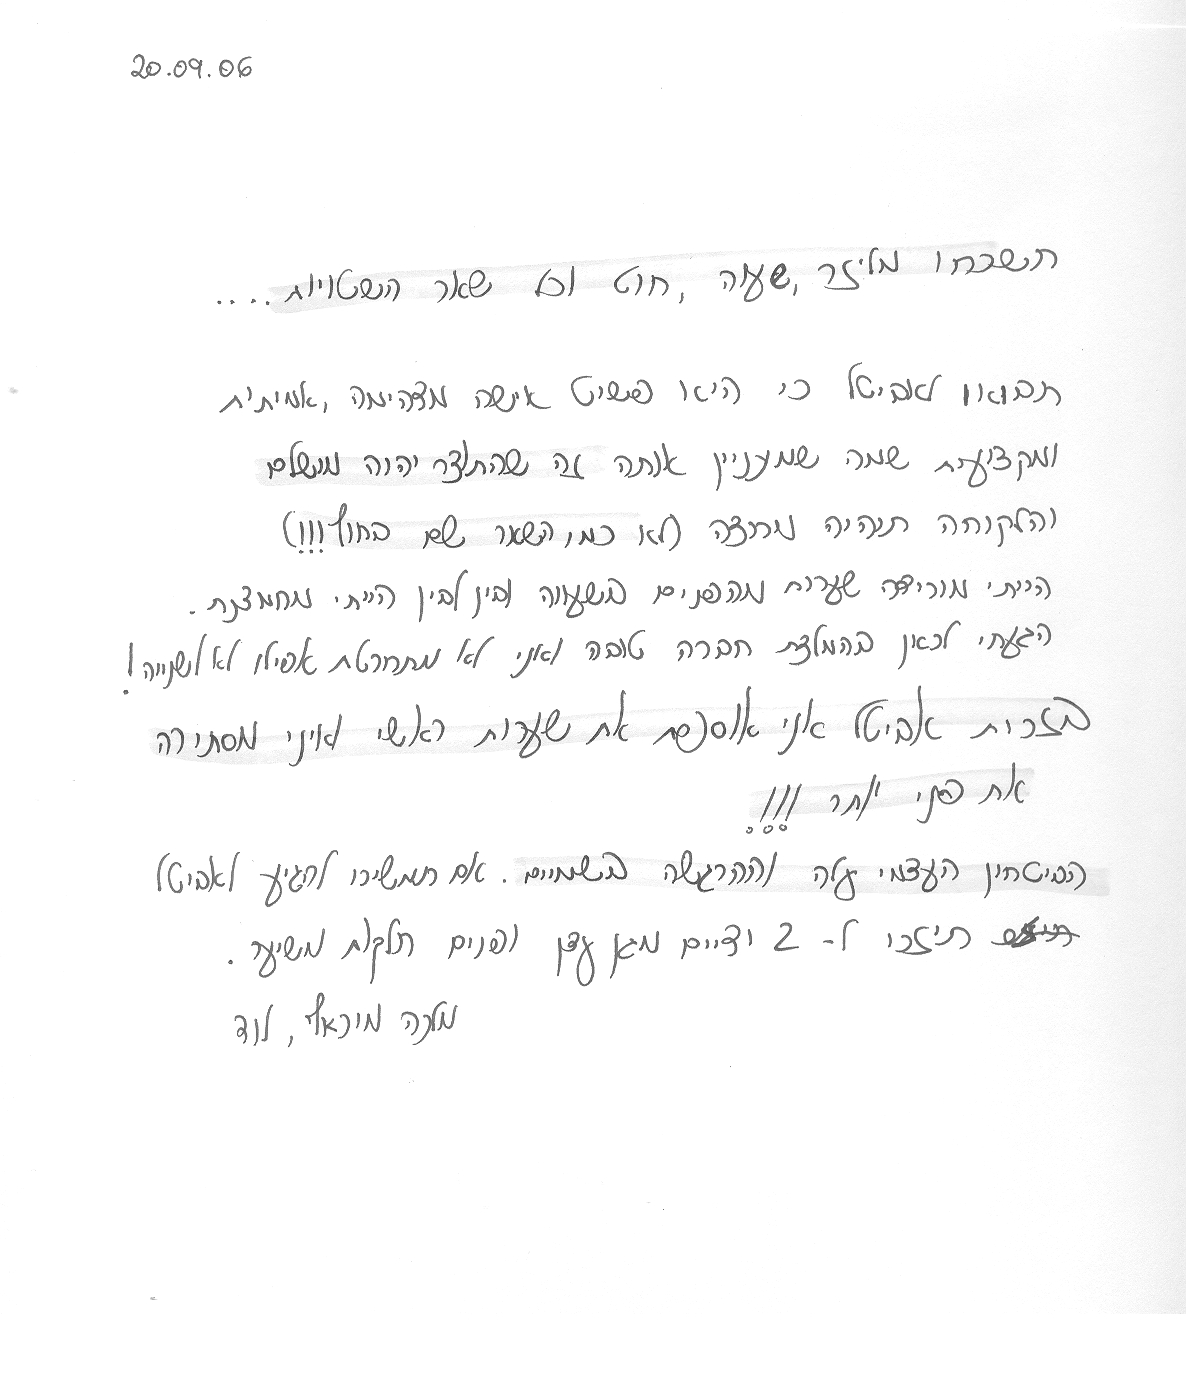 20.09.06
תשכחו מלייזר, שעוה, חוט וכל שאר השטויות....
תבואו לאביטל כי היא פשוט אישה מדהימה, אמיתית
ומקצועית שמה שמעניין אותה זה שהתוצר יהיה מושלם
והלקוחה תהיה מרוצה (לא כמו השאר שם בחוץ!!!)
הייתי מורידה שערות מהפנים בשעווה ובין לבין הייתי מחמצנת.
הגעתי לכאן בהמלצת חברה טובה ואני לא מתחרטת אפילו לא לשנייה!
בזכות אביטל אני אוספת את שערות ראשי ואיני מסתירה
את פני יותר!!!
הביטחון העצמי עלה וההרגשה בשמיים. אם תמשיכו להגיע לאביטל
תיזכו ל- 2 ידיים מגן עדן ופנים חלקות משיער.
מלכה, לוד